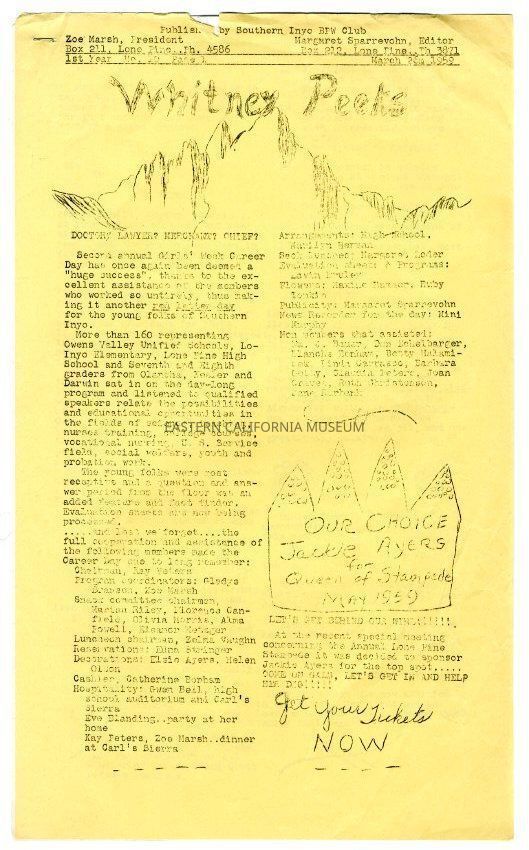 Publish by Southern Inyo BPW Club
Zoe Marsh, President Margaret Sparrevohn, Editor
Box 211, Lone Pine..Ph. 4586 Box 212, Lone Pine..Ph 3871
1st Year Page 1 March 1959
Whitney Peeks
DOCTOR? LAWYER? MERCHANT? CHIEF?
Second annual Girls' Week Career
Day has once again been deemed a
"huge success", thanks to the ex-
cellent assistance of the members
who worked so untirely, thus mak-
ing it another day
for the young folks of Southern
Inyo.
More than 160 representing
Owens Valley Unified Schools, Lo-
Inyo Elementary, Lone Pine High
School and Seventh and Eighth
graders from Olancha, Keeler and
Darwin sat in on the day-long
program and listened to qualified
speakers relate the possibilities
and educational opportunities in
the fields of
nurses training,
vocational nursing, U. S. Service
field, social welfare, youth and
probation work.
The young folks were most
receptive and a question and ans-
wer period from the floor was an
added feature and fact finder.
Evaluation sheets are now being
processed.
.....and lest we forget....the
full cooperation and assistance of
the following members made the
Career Day one to long remember:
Chairman, Kay Peters
Program coordinators: Gladys
Branson, Zoe Marsh
Snack committee chairmen,
Marian Riley, Florence Can-
field, Olivia Morris, Alma
Powell, Eleanor
Luncheon chairman, Zelma Vaughn
Reservations: Edna
Decorations: Elsie Ayers, Helen
Cashier, Catherine Borham
Hospitality: Gwen Beil, high
school auditorium and Carl's
Sierra
Eve Blanding..party at her
home
Kay Peters, Zoe Marsh..dinner
at Carl's Sierra
Arrangements: High School,
Marilyn Herman
Margaret Loder
Evaluation Sheets & Programs:
Flowers: Ruby
Publicity: Margaret Sparrevohn
News Reporter for the day: Mimi
Murphy
Non members that assisted:
Blanche Borham, Betty
Barbara
Peters, Joan
Graves, Ruth Christenson,
EASTERN CALIFORNIA MUSEUM
OUR CHOICE
Jackie Ayers
for
Queen of Stampede
MAY 1959
LET'S GET BEHIND OUR
At the recent special meeting
concerning the Annual Lone Pine
Stampede it was decided to sponsor
Jackie Ayers for the top spot.....
COME ON GALS, LET'S GET IN AND HELP
HER
Get Your Tickets
NOW